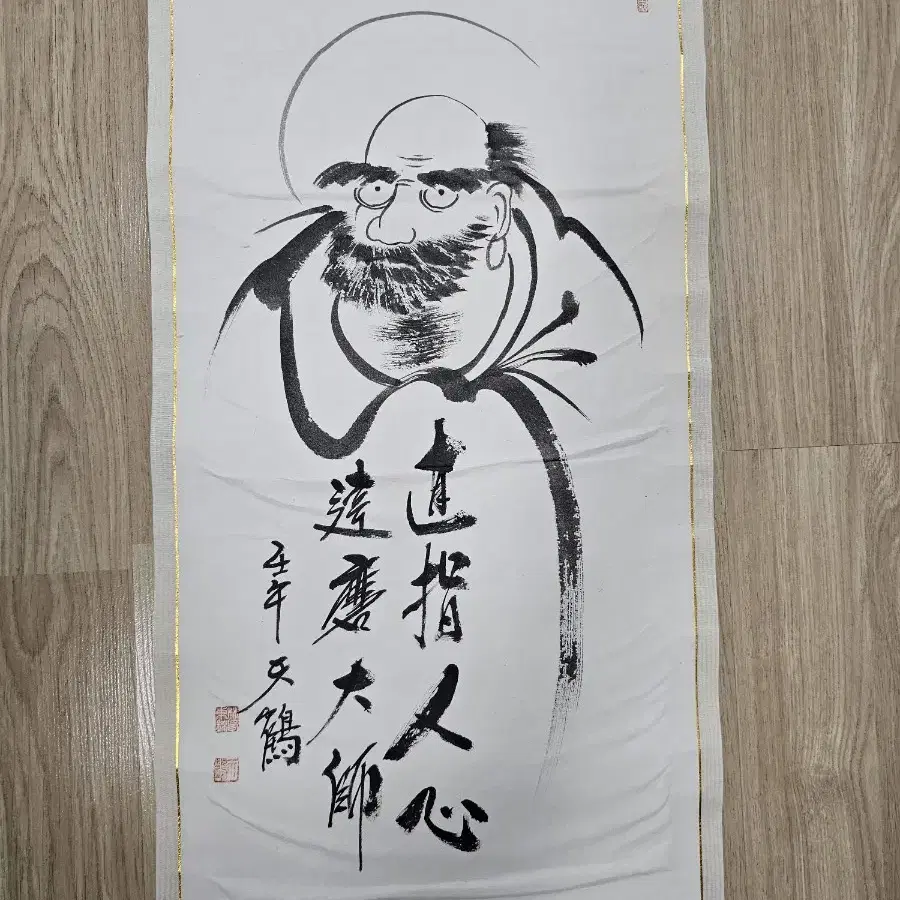 直指人心
達磨大師
壬午 天鶴